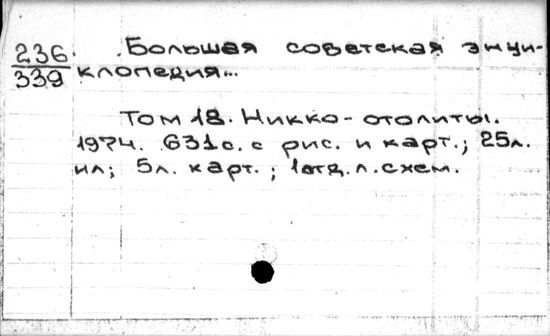 236
339
Большая советская энци-
клопедия...
Том 18. Никко - отолиты.
1974. 631с. с рис. и карт.; 25л.
ил; 5л. карт.; 1отд. л. схем.